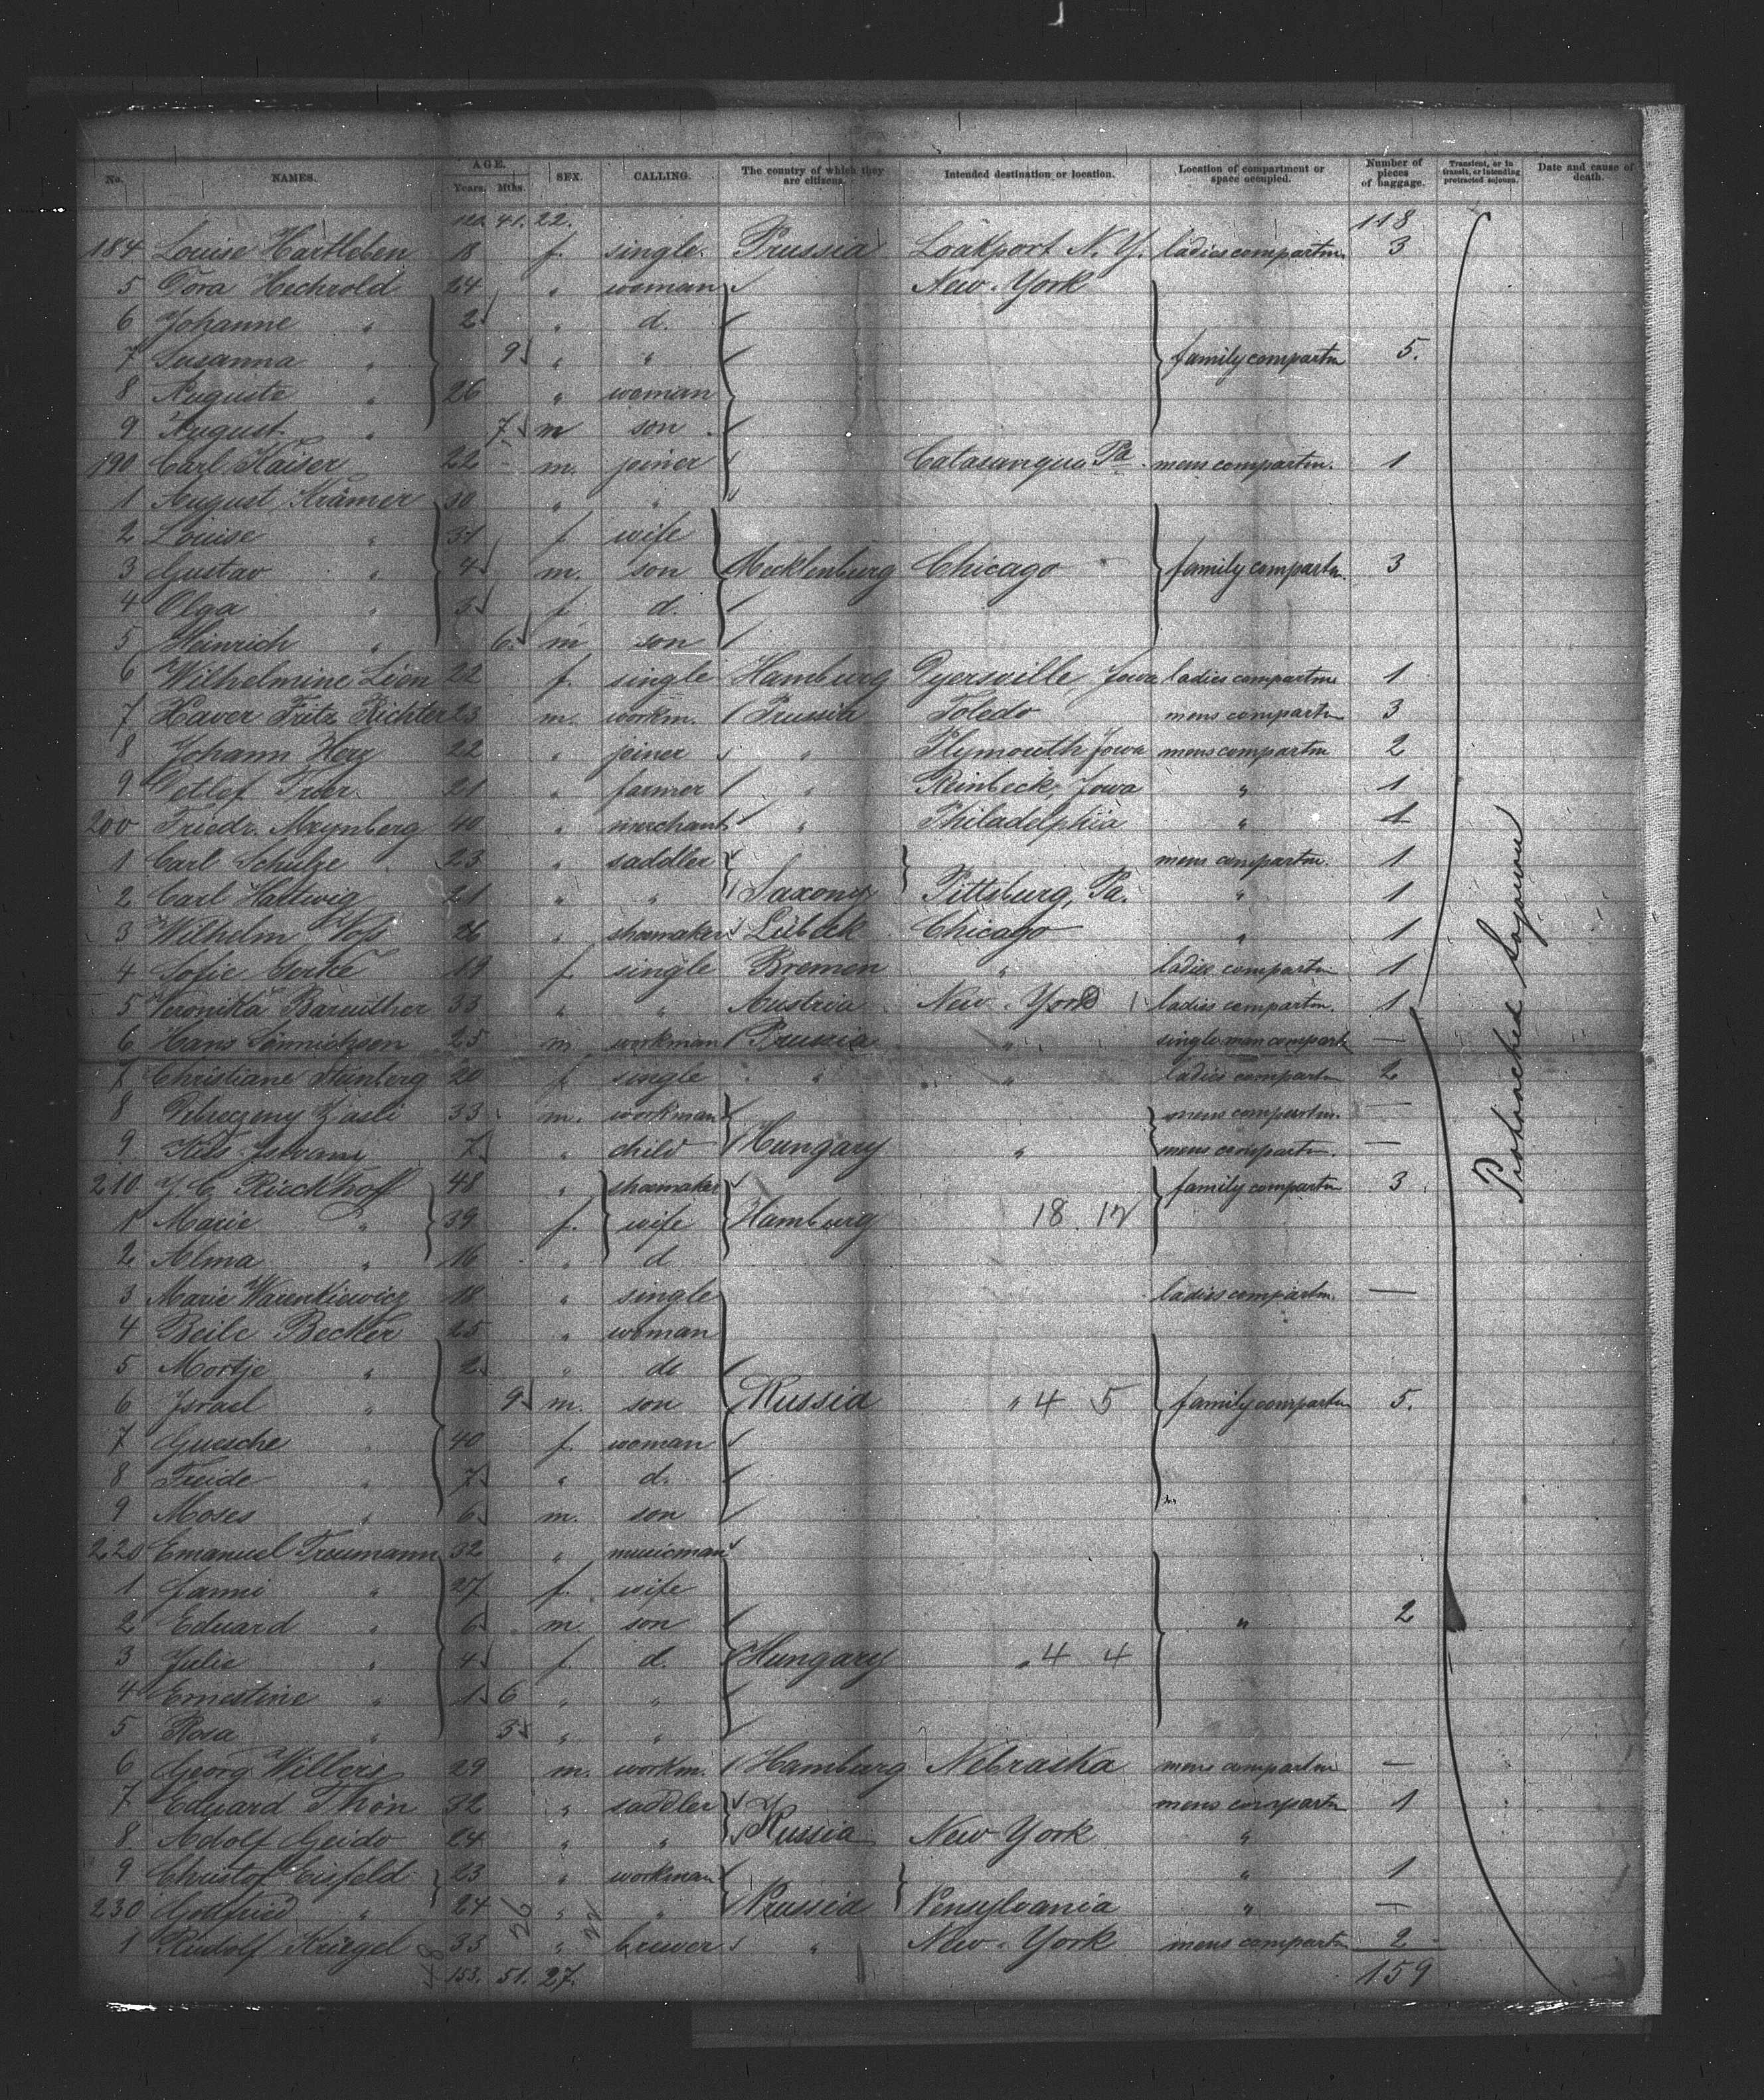 No. NAMES. AGE. Years. Mths. SEX. CALLING. The country of which they are citizens. Intended destination or location. Location of compartment or space occupied. Number of pieces of baggage. Transient, or in transit, or intending protracted sojourn. Date and cause of death.
41. 22. 118
184 Louise Hartleben 18 f. single. Prussia Loakport N. Y. ladies compartm. 3
5 Hechrold 24 " woman New-York
6 Johanne " 2 " d.
7 Susanna " 9 " " family compartm 5.
8 Auguste " 26 " woman
9 August " 7 m son
190 Carl Kaiser 22 m. joiner Catasauqua Pa. mens compartm. 1
1 August Krämer 30 " "
2 Louise " 31 f wife
3 Gustav " 4 m. son Mecklenburg Chicago family compartm. 3
4 Olga " 3 f. d.
5 Heinrich " 6. m son
6 Wilhelmine Lion 22 f. single Hamburg Dyersville, Iowa ladies compartm 1
7 Xaver Fritz Richter 23 m. workm. Prussia Toledo mens compartm 3
8 Johann Herz 22 " joiner " Plymouth Iowa mens compartm 2
9 Detlef 21 " farmer " Reinbeck, Iowa " 1
200 Friedr. Meynberg 40 " merchant " Philadelphia " 1
1 Carl Schulze 23 " saddler mens compartm. 1
2 Carl Hattwig 21 " " Saxony Pittsburg, Pa. " 1
3 Wilhelm Voß 26 " shoemaker Lübeck Chicago " 1
4 Sofie Gerke 19 f. single Bremen " ladies compartm 1
5 Veronika Bareuther 33 " " Austria New-York ladies compartm. 1
6 Hans Sönnichsen 25 m workman Prussia " single men compart —
7 Christiane Steinberg 20 f. single " " ladies compartm 2
8 33 m. workman mens compartm. —
9 7 " child Hungary " mens compartm. —
210 J. C. Rückhoff 48 " shoemaker family compartm 3
1 Marie " 39 f. wife Hamburg 18
2 Alma " 16 " d
3 Marie Warenkiewicz 18 " single ladies compartm. —
4 Beile Becker 25 " woman
5 Mortje " 2 " do
6 Israel " 9 m. son Russia " 4 5 family compartm 5.
7 Guesche " 40 f. woman
8 Freide " 7 " d.
9 Moses " 6 m. son
220 Emanuel Troumann 32 " musicman
1 Fanni " 27 f. wife
2 Eduard " 6 m. son " 2
3 Julie " 4 f. d. Hungary " 4 4
4 Ernestine " 1 6 " "
5 Rosa " 3 " "
6 Georg Willers 29 m. workm. Hamburg Nebraska mens compartm —
7 Eduard Thön 32 " saddler mens compartm 1
8. Adolf Geido 24 " " Russia New York "
9 Christof Eisfeld 23 " workman " 1
230 Gottfried " 24 " " Prussia Pensylvania " —
1 Rudolf Kriegel 33 " brewer " New-York mens compartm 2
153. 51. 27. 159
Protracted Sojourn